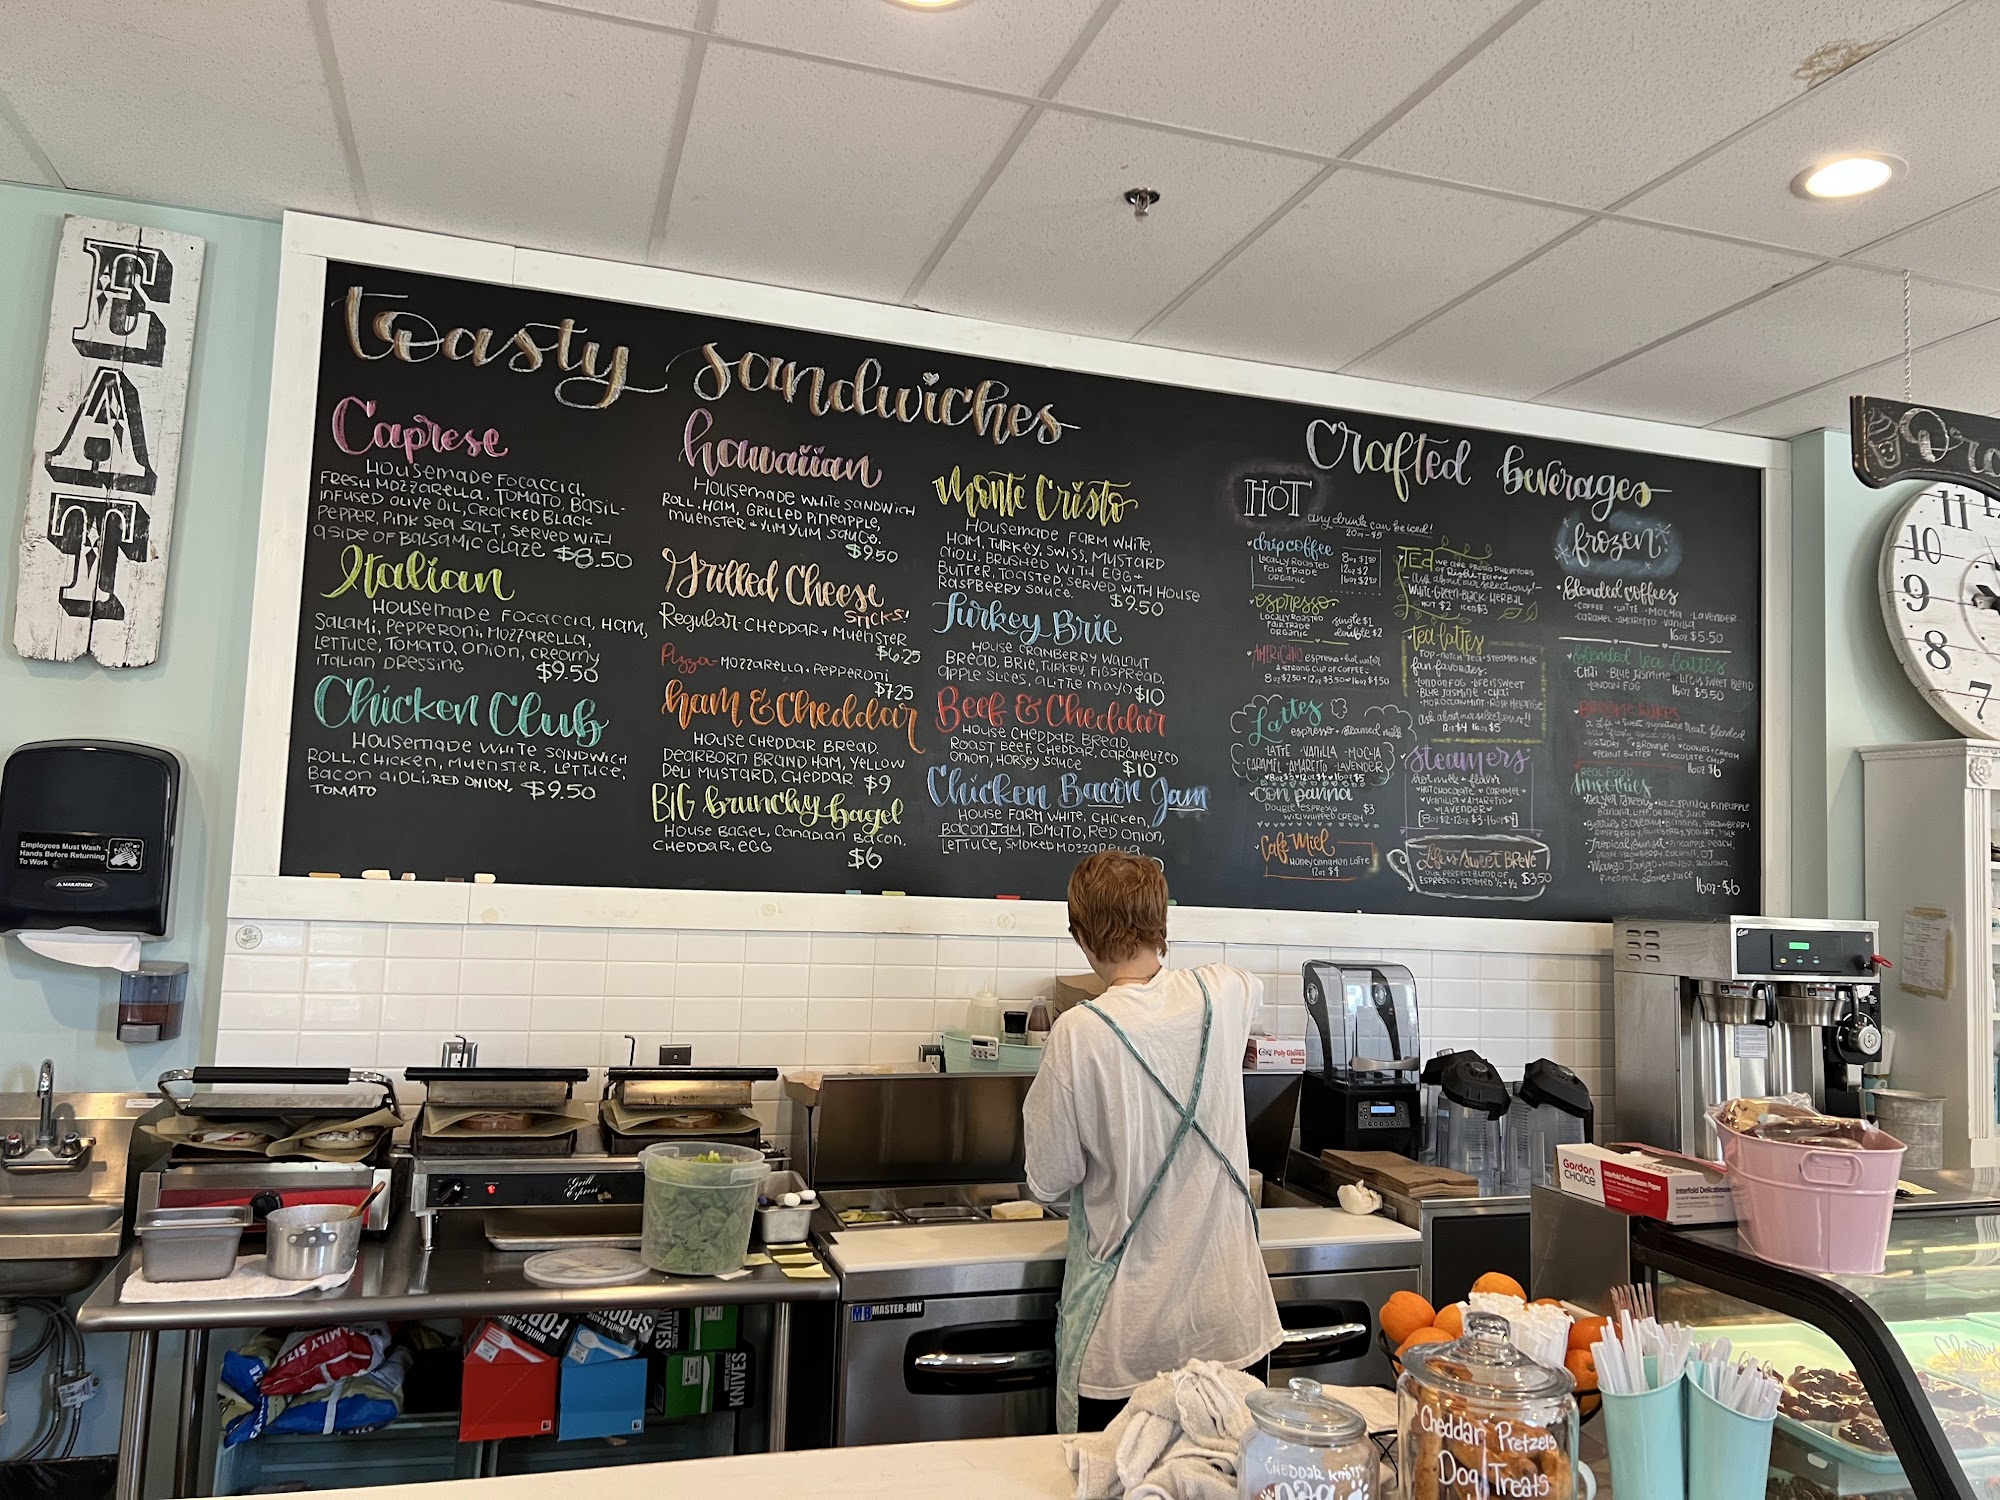 EAT
toasty sandwiches
Caprese
Housemade Focaccia,
Fresh Mozzarella, Tomato, Basil-
infused Olive Oil, Cracked Black
Pepper, Pink Sea Salt, served with
a side of Balsamic Glaze $8.50
Italian
Housemade Focaccia, Ham,
Salami, Pepperoni, Mozzarella,
Lettuce, Tomato, Onion, Creamy
Italian Dressing $9.50
Chicken Club
Housemade White Sandwich
Roll, Chicken, Muenster, Lettuce,
Bacon aioli, Red Onion,
Tomato $9.50
hawaiian
Housemade White Sandwich
Roll, Ham, Grilled Pineapple,
Muenster + Yum Yum Sauce.
$9.50
Grilled Cheese
Sticks!
Regular - Cheddar + Muenster
$6.25
Pizza - Mozzarella, Pepperoni
$7.25
ham & Cheddar
House Cheddar Bread,
Dearborn Brand Ham, Yellow
Deli Mustard, Cheddar $9
BiG brunchy bagel
House Bagel, Canadian Bacon,
Cheddar, Egg
$6
Monte Cristo
Housemade Farm White,
Ham, Turkey, Swiss, Mustard
aioli. Brushed with Egg +
Butter, Toasted, Served with House
Raspberry Sauce. $9.50
Turkey Brie
House Cranberry Walnut
Bread, Brie, Turkey, Fig Spread,
Apple Slices, a little mayo $10
Beef & Cheddar
House Cheddar Bread,
Roast Beef, Cheddar, Caramelized
Onion, Horsey Sauce $10
Chicken Bacon Jam
House Farm White, Chicken,
Bacon Jam, Tomato, Red Onion,
Lettuce, Smoked Mozzarella
Crafted beverages
HOT
any drink can be iced!
20oz - $5
drip coffee
Locally Roasted
Fair Trade
Organic
12oz $2
espresso
Locally Roasted
Fair Trade
Organic
single $1
double $2
AMERICANO espresso + hot water
A STRONG CUP OF COFFEE
8oz $2.50 • 12oz $3.50 • 16oz $4.50
Lattes
espresso + steamed milk
LATTE • VANILLA • MOCHA
CARAMEL • AMARETTO • LAVENDER
8oz $3 • 12oz $4 • 16oz $5
Con panna
Double espresso
with whipped cream
$3
Cafe Miel
Honey Cinnamon Latte
12oz $4
TEA
we are proud purveyors
- ask about our selections! -
White • Green • Black • Herbal
HOT $2 ICED $3
Tea lattes
top-notch tea + steamed milk
fan favorites:
London Fog • Life is Sweet
• Blue Jasmine • Chai
• Moroccan Mint • Rose Melange
ask about our selections!!
12oz $4 16oz $5
Steamers
hot milk + flavor
• Hot Chocolate • Caramel
• Vanilla • Amaretto
• Lavender •
8oz $2 • 12oz $3 • 16oz $4
Life is Sweet BREVE
Our perfect blend of
espresso + steamed ½ + ½ $3.50
frozen
blended coffees
• Coffee • Latte • Mocha • Lavender
• Caramel • Amaretto • Vanilla
16oz $5.50
blended tea lattes
Chai • Blue Jasmine • Life is Sweet Blend
• London Fog 16oz $5.50
a Life is Sweet signature treat blended
• Birthday • Brownie • Cookies + Cream
• Peanut Butter • Chocolate Chip
16oz $6
REAL FOOD
Smoothies
16oz - $6
11
10
9
8
7
Employees Must Wash
Hands Before Returning
To Work
MARATHON
Grill
Express
MB MASTER-BILT
Poly Gloves
Gordon
CHOICE
FAMILY
SIZE
FORKS
SPOONS
KNIVES
KNIVES
Cheddar Pretzels
Dog Treats
CHEDDAR KNOTS
DOG
Cherry